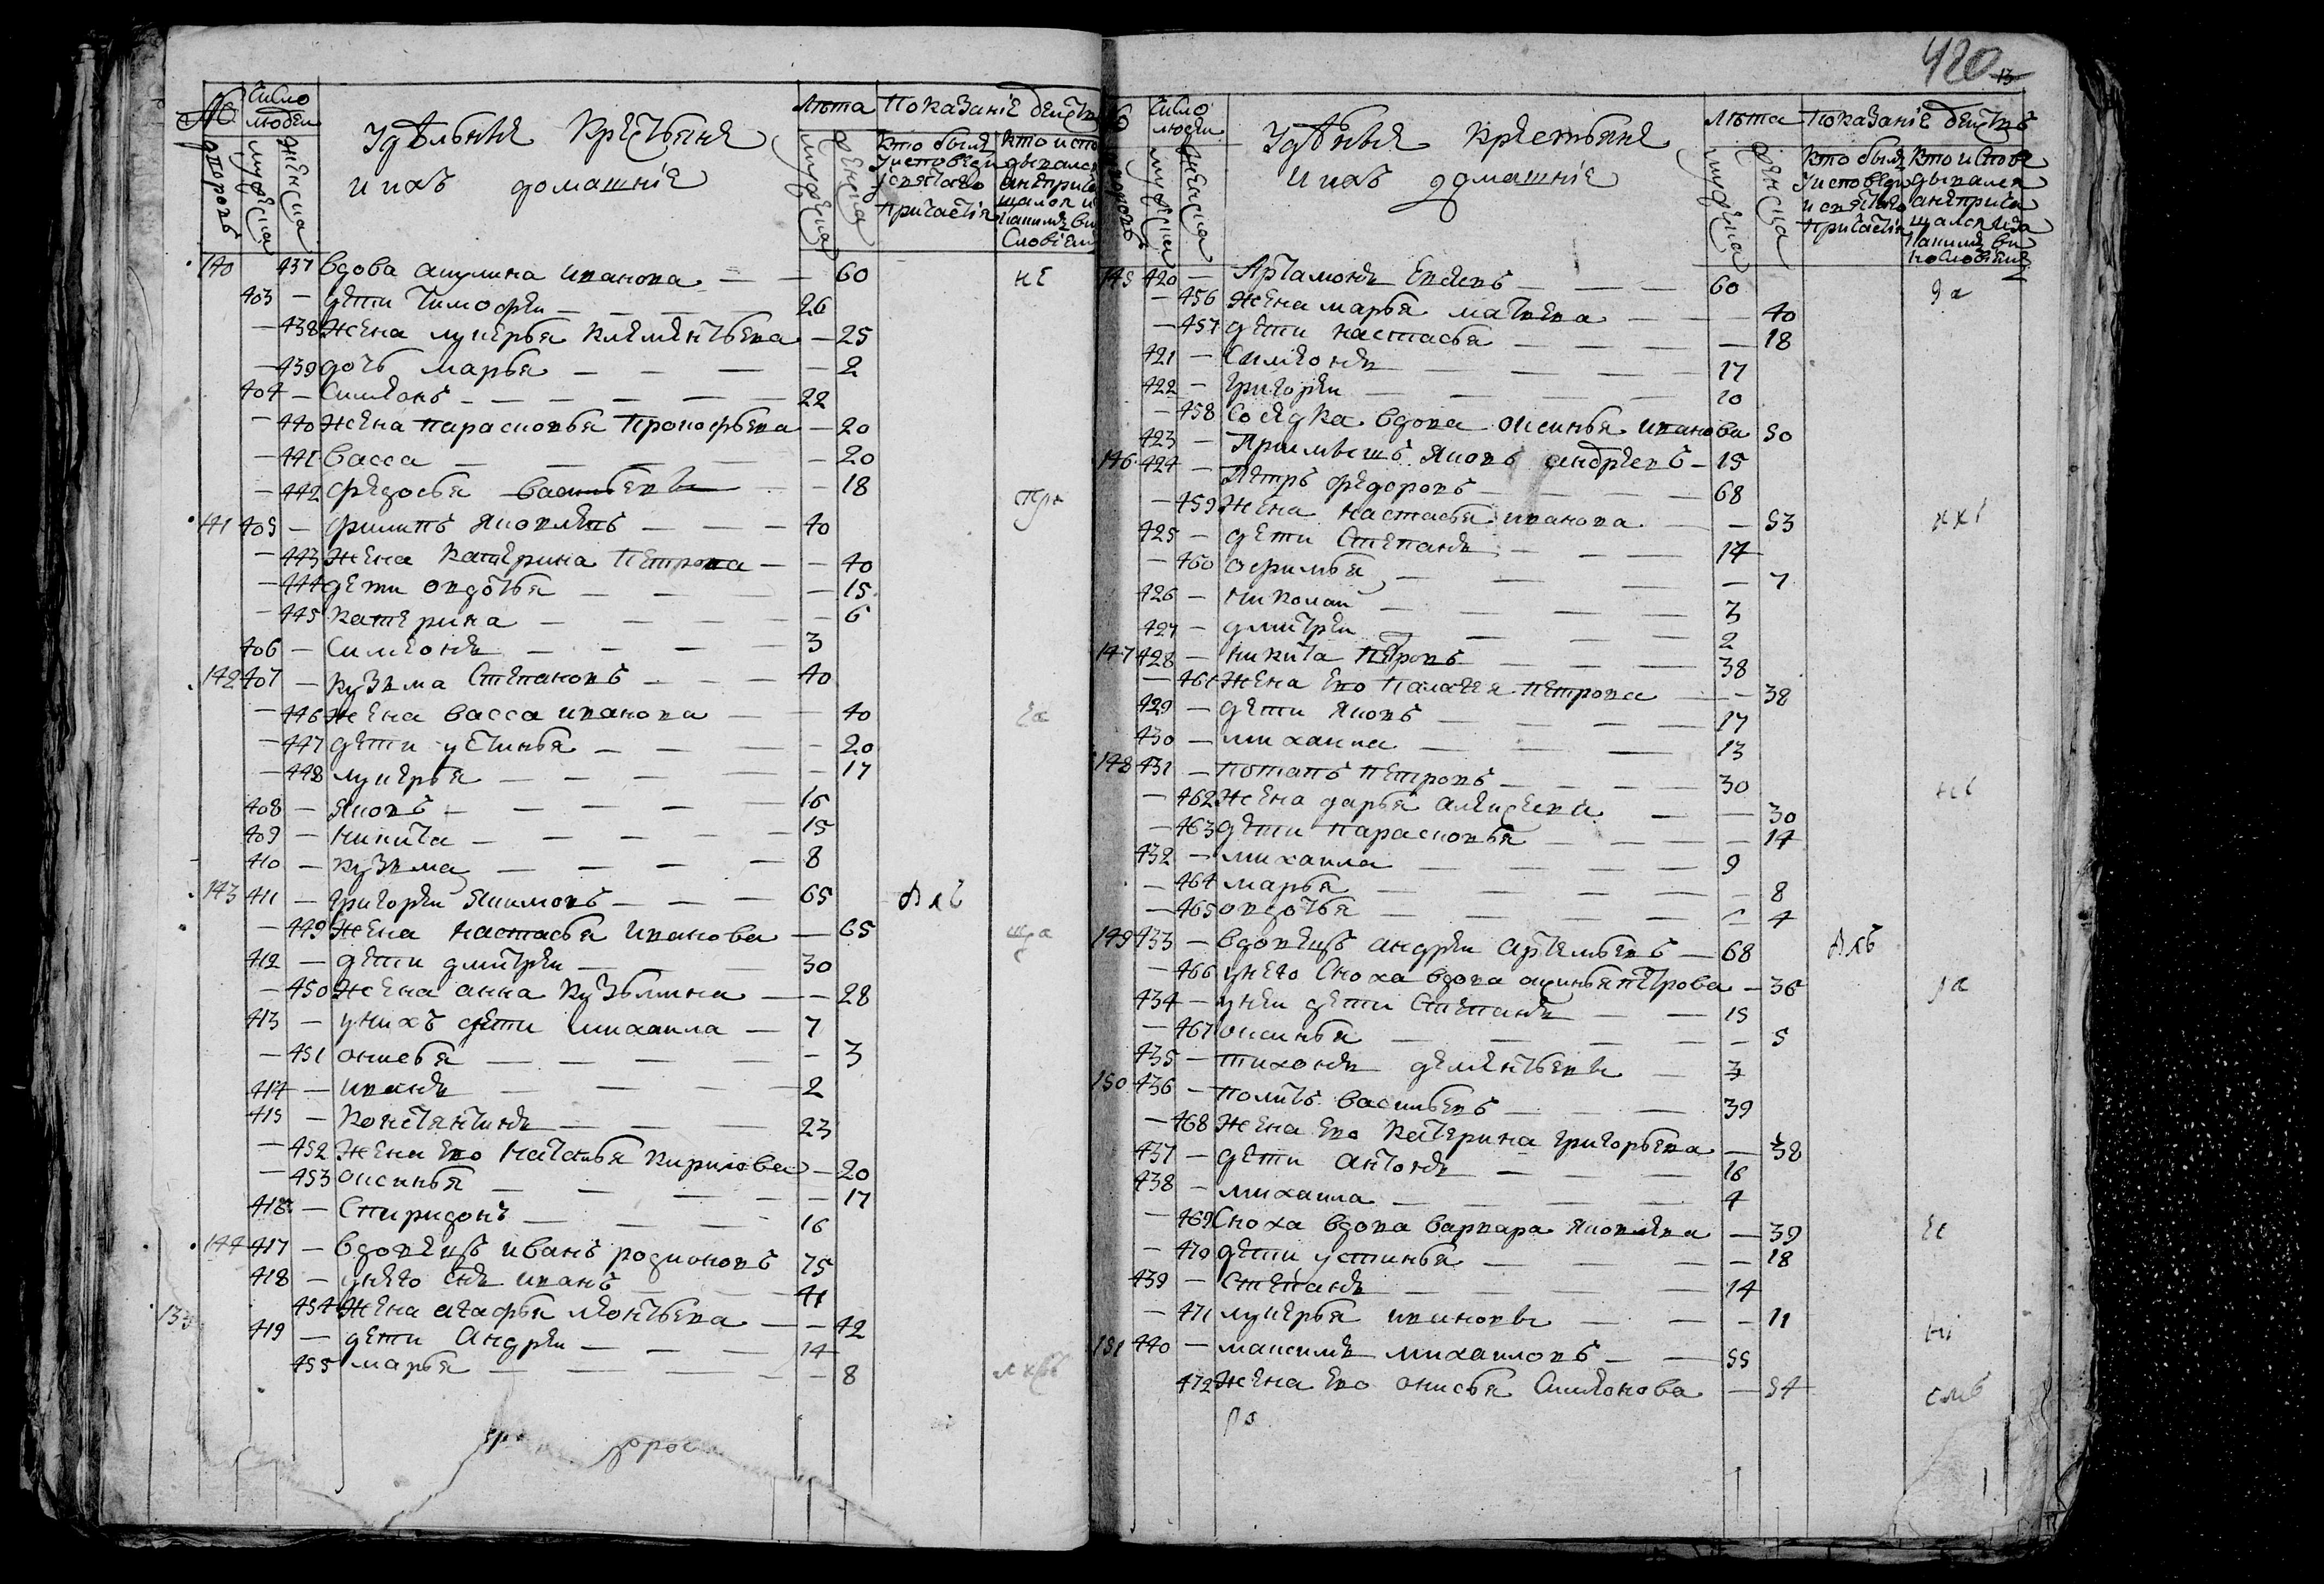 № дворовъ
Число людеи
мужеска
женска
Удѣльныя Крестьяня
и ихъ домашнїе
Лѣта
мужеска
женска
Показанїе действ
Кто былъ у исповеди и святаго причастїя
Кто исповедывался а не прича щался и
140 437 вдова акулина иванова — — 60
403 — дети тимофеи — 26
— 438 жена лукерья клементьева — 25
— 439 дочь марья — — — 2
404 — Симеонъ — — — 22
— 440 жена парасковья прокофьева — 20
— 441 васса — — — 20
— 442 федосья васильевы — 18
141 405 — филипъ яковлевъ — — — 40
— 443 жена катерина петрова — — 40
— 444 дети овдотья — — — 15
— 445 катерина — — — 6
406 — Симеонъ — — — 3
142 407 — кузьма Степановъ — — — 40
— 446 жена васса иванова — — 40
— 447 дети устинья — — — 20
— 448 лукерья — — — 17
408 — яковъ — — — 16
409 — никита — — — 15
410 — кузьма — — — 8
143 411 — григореи якимовъ — — 65
— 449 жена настасья иванова — 65
412 — дети дмитреи — 30
— 450 жена анна кузьмина — — 28
413 — у нихъ дети михаила — 7
— 451 анисья — — — 3
414 — иванъ — — — 2
415 — константинъ — — — 23
— 452 жена ево наталья кирилова — 20
— 453 оксинья — — — 17
416 — Спиридонъ — — — 16
144 417 — вдовецъ иванъ родионовъ 75
418 — у него снъ иванъ — 41
454 жена агафья леонтьева — — 42
419 — дети андреи — — — 14
455 марья — — — 8
420
13
Число людеи
мужеска
женска
Удѣльныя крестьяня
и ихъ домашнїе
Лѣта
мужеска
женска
Показанїе действъ
Кто былъ у исповеди и святаго причастїя
Кто испове дывался а не прича щался и за какимъ ви нословїемъ
145 420 — Артамонъ Евсеевъ — — — 60
— 456 жена марья матвеева — — 40
— 457 дети настасья — — — 18
421 — Симеонъ — — — 17
422 — григореи — — — 10
— 458 Соседка вдова оксинья иванова 50
423 — Приимышъ яковъ андреевъ — 15
146 424 — Петръ федоровъ — — — 68
— 459 жена настасья иванова — — 53
425 — дети Степанъ — — — 14
— 460 офимья — — — 7
426 — николаи — — — 3
427 — дмитреи — — — 2
147 428 — никита петровъ — — — 38
— 461 жена ево палагея петрова — — 38
429 — дети яковъ — — — 17
430 — михаила — — — 13
148 431 — потапъ петровъ — — — 30
— 462 жена дарья алексеева — — 30
— 463 дети парасковья — — — 14
432 — михаила — — — 9
— 464 марья — — — 8
— 465 овдотья — — — 4
149 433 — вдовецъ андреи артемьевъ — 68
— 466 у него Сноха вдова оксинья петрова — 36
434 — у неи дети Степанъ — — 15
— 467 оксинья — — — 5
435 — тихонъ дементьевы — 3
150 436 — политъ васильевъ — — — 39
— 468 жена ево катерина григорьева — 38
437 — дети антонъ — — — 16
438 — михаила — — — 4
— 469 Сноха вдова варвара яковлева — 39
— 470 дети устинья — — — 18
439 — Степанъ — — — 14
— 471 лукерья ивановы — — — 11
151 440 — максимъ михаиловъ — — 55
472 жена ево анисья Симеонова — 54